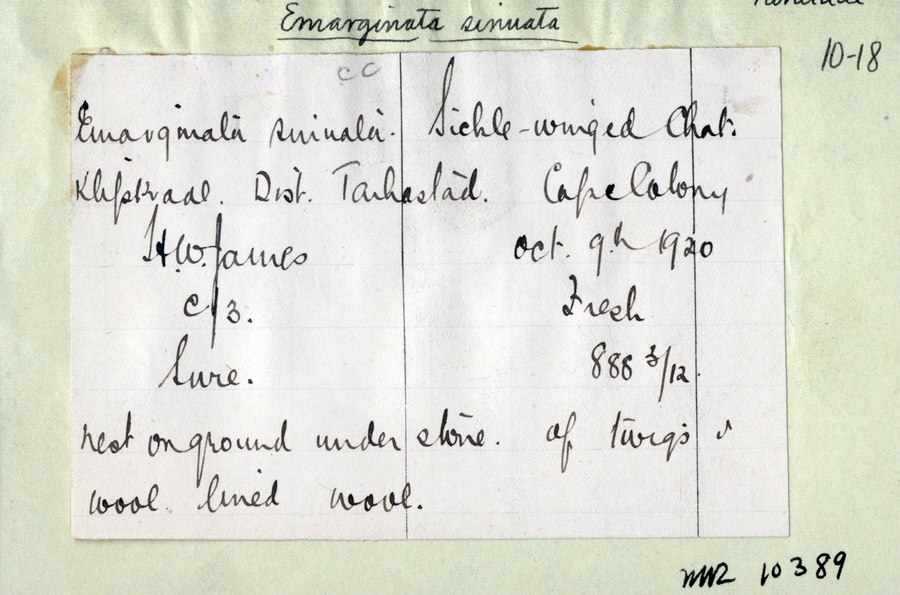 Emarginata sinuata
10-18
cc
Emarginata sinuata. Sickle-winged Chat.
Klipkraal. Dist. Tarkastad. Cape Colony
H.W. James oct. 9th 1920
c/3. Fresh
Sure. 888 3/12.
nest on ground under stone. of twigs &
wool lined wool.
10389